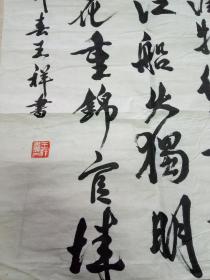 物
江船火獨明
花重錦官城
春王祥書